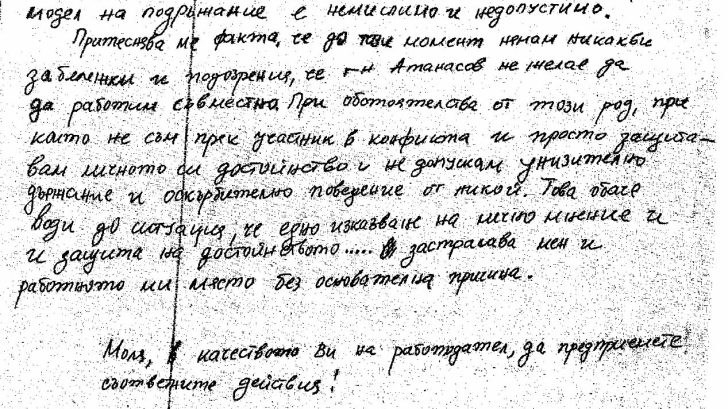 модел на подражание е немислимо и недопустимо.
Притеснява ме факта, че до този момент нямам никакви
забележки и подозрения, че г-н Атанасов не желае да
да работим съвместно. При обстоятелства от този род, при
които не съм пряк участник в конфликта и просто защита-
вам личното си достойнство и не допускам унизително
държание и оскърбително поведение от никой. Това обаче
води до ситуация, че едно изказване на лично мнение и
и защита на достойнството..... застрашава мен и
работното ми място без основателна причина.
Моля, в качеството Ви на работодател, да предприемете
съответните действия!